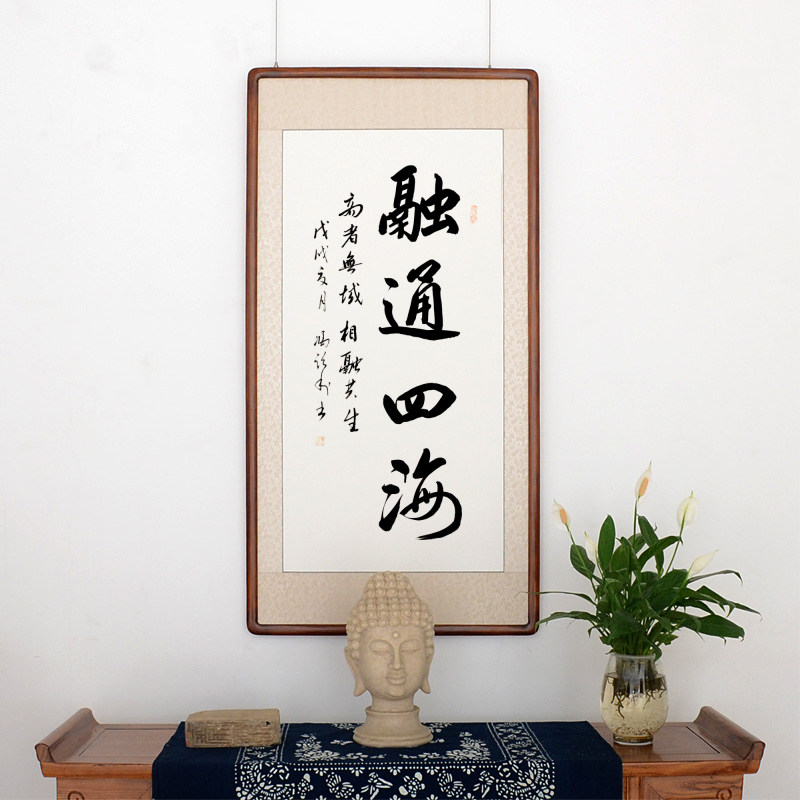 融通四海
商者無域 相融共生
戊戌夏月